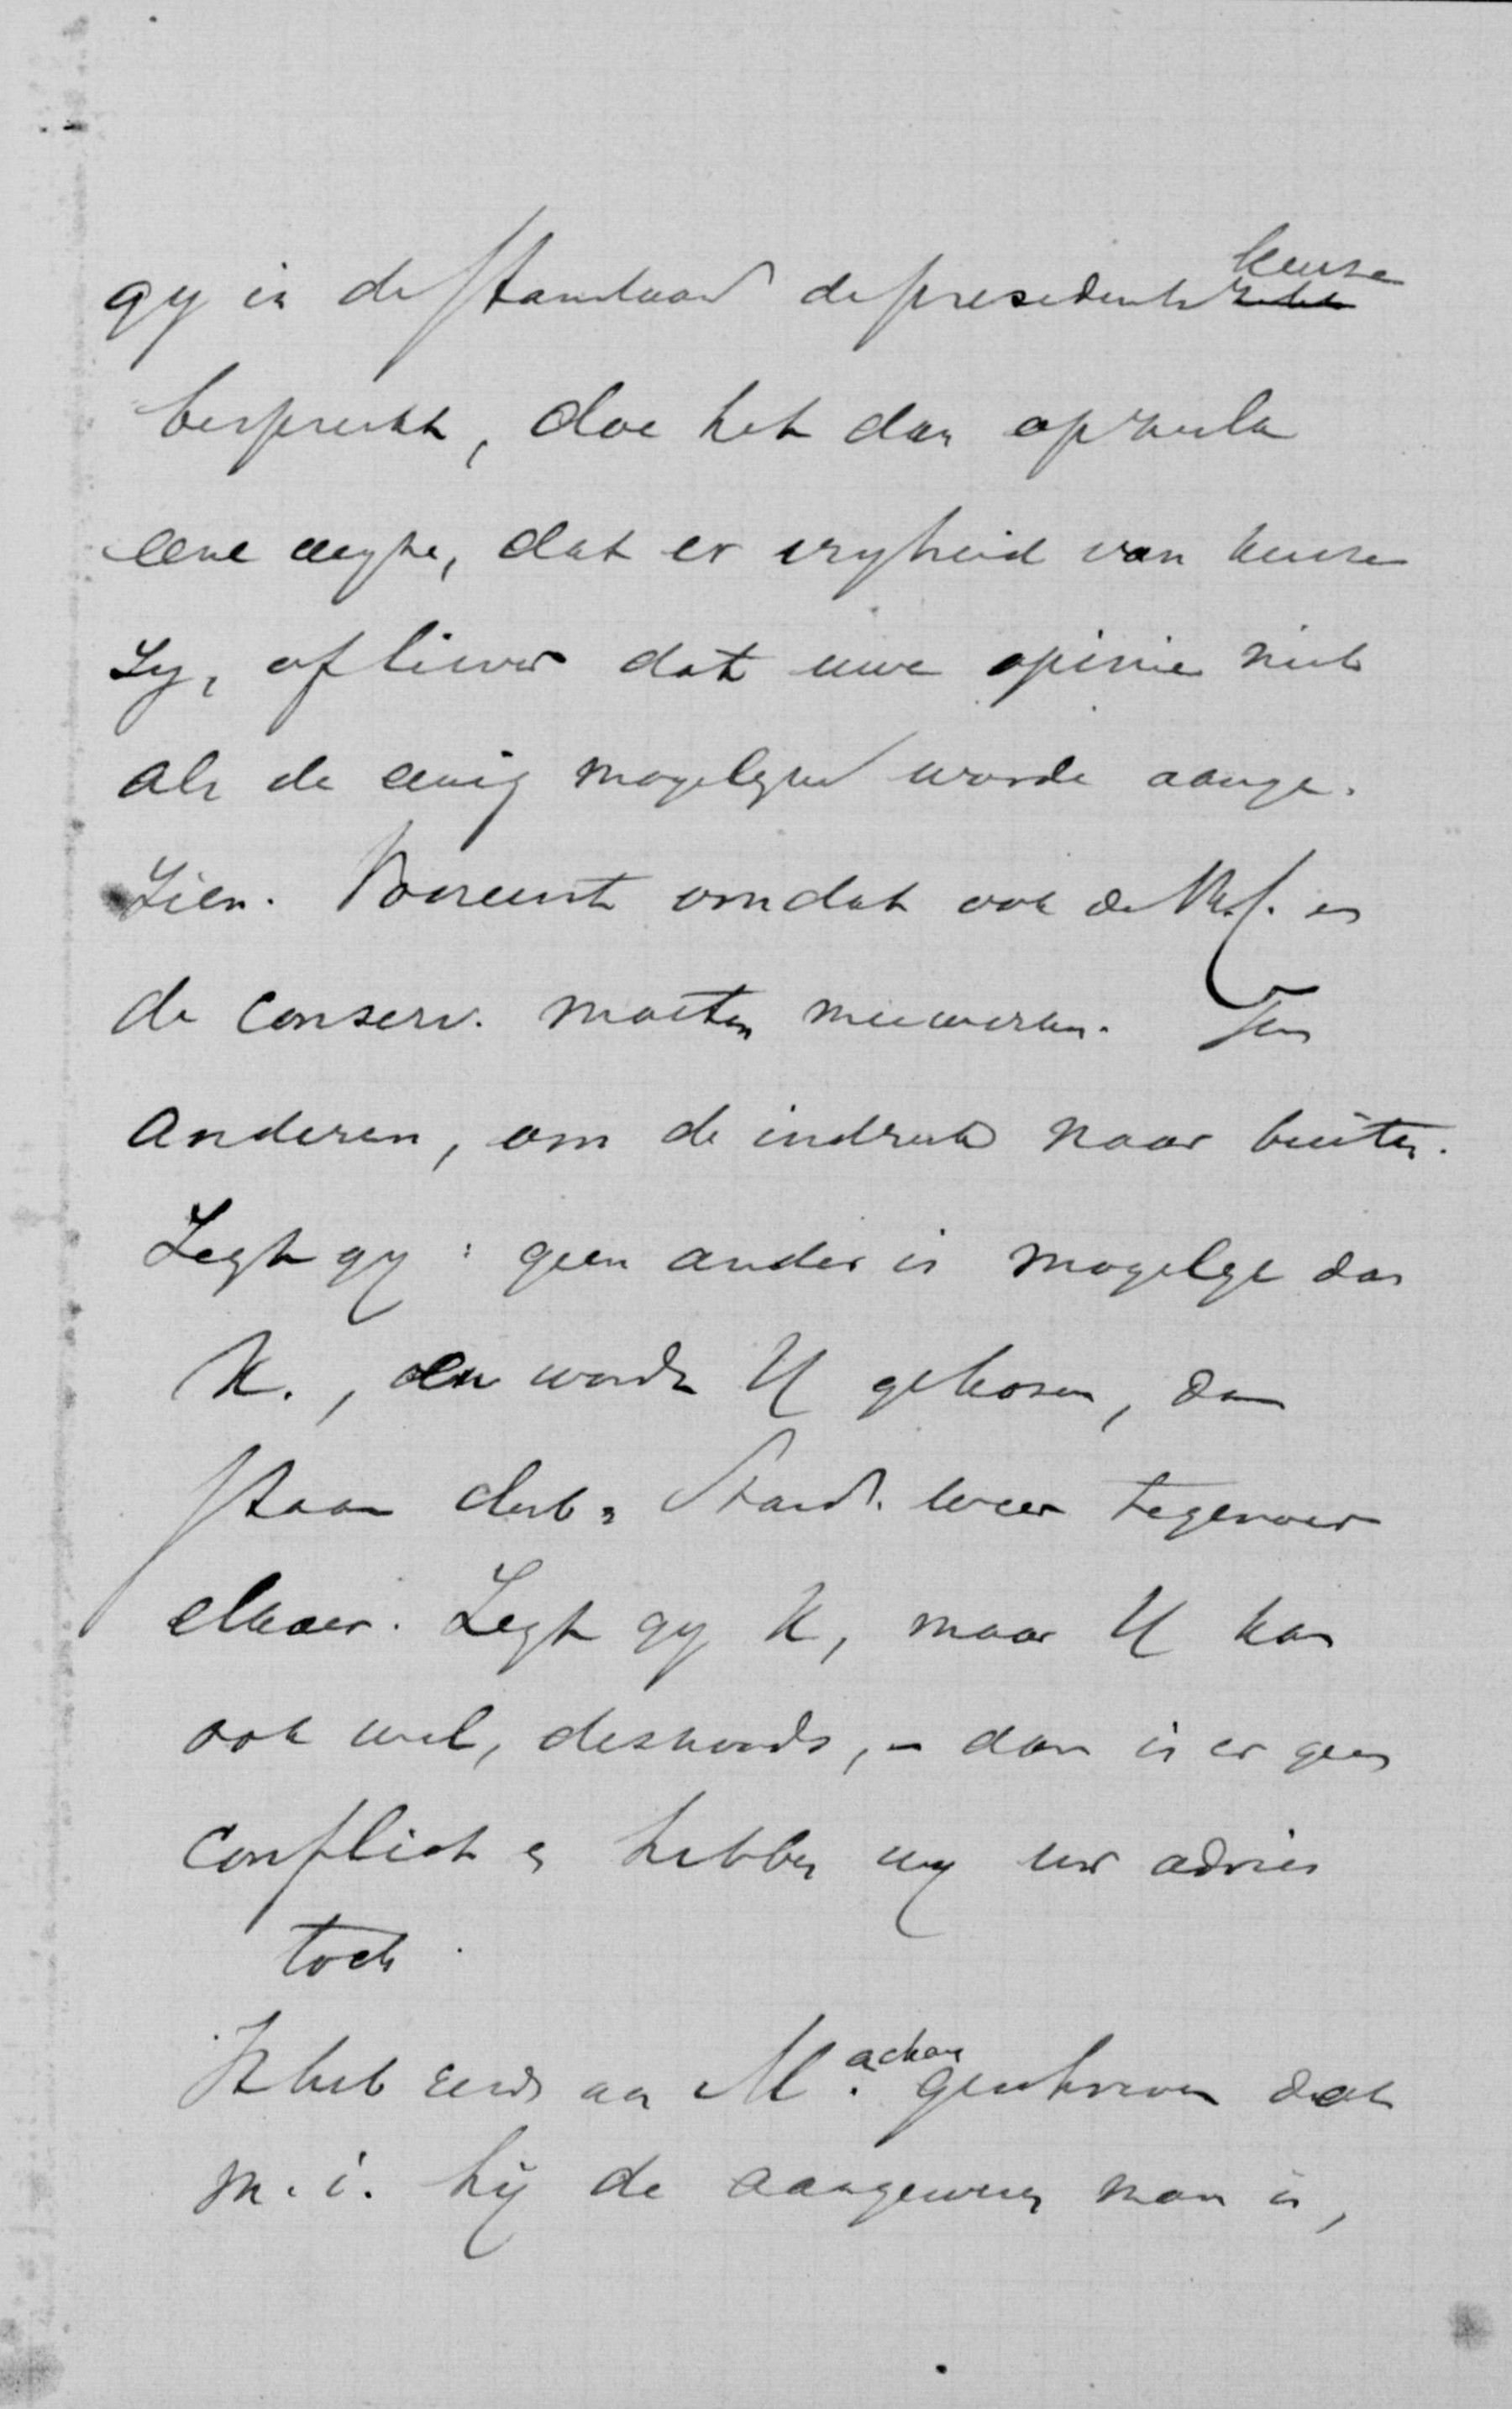 gy in de Standaard de presidents keuze
bespreekt, doe het dan op zulk
eene wyze, dat er vryheid van keuze
zy, of liever dat uwe opinie niet
als de eenig mogelyke worde aange-
zien. Vooreerst omdat ook de
de conserv. moeten meewerken. Ten
anderen, om de indruk naar buiten.
Zegt gy: geen ander is mogelyk dan
K., en wordt H gekozen, dan
staan club & Stand. weer tegenover
elkaer. Zegt gy K, maar H kan
ook wel, desnoods, - dan is er geen
conflict & hebben wy uw advies
toch.
Ik heb reeds aan Mackay geschreven dat
m.i. hij de aangewezen man is,